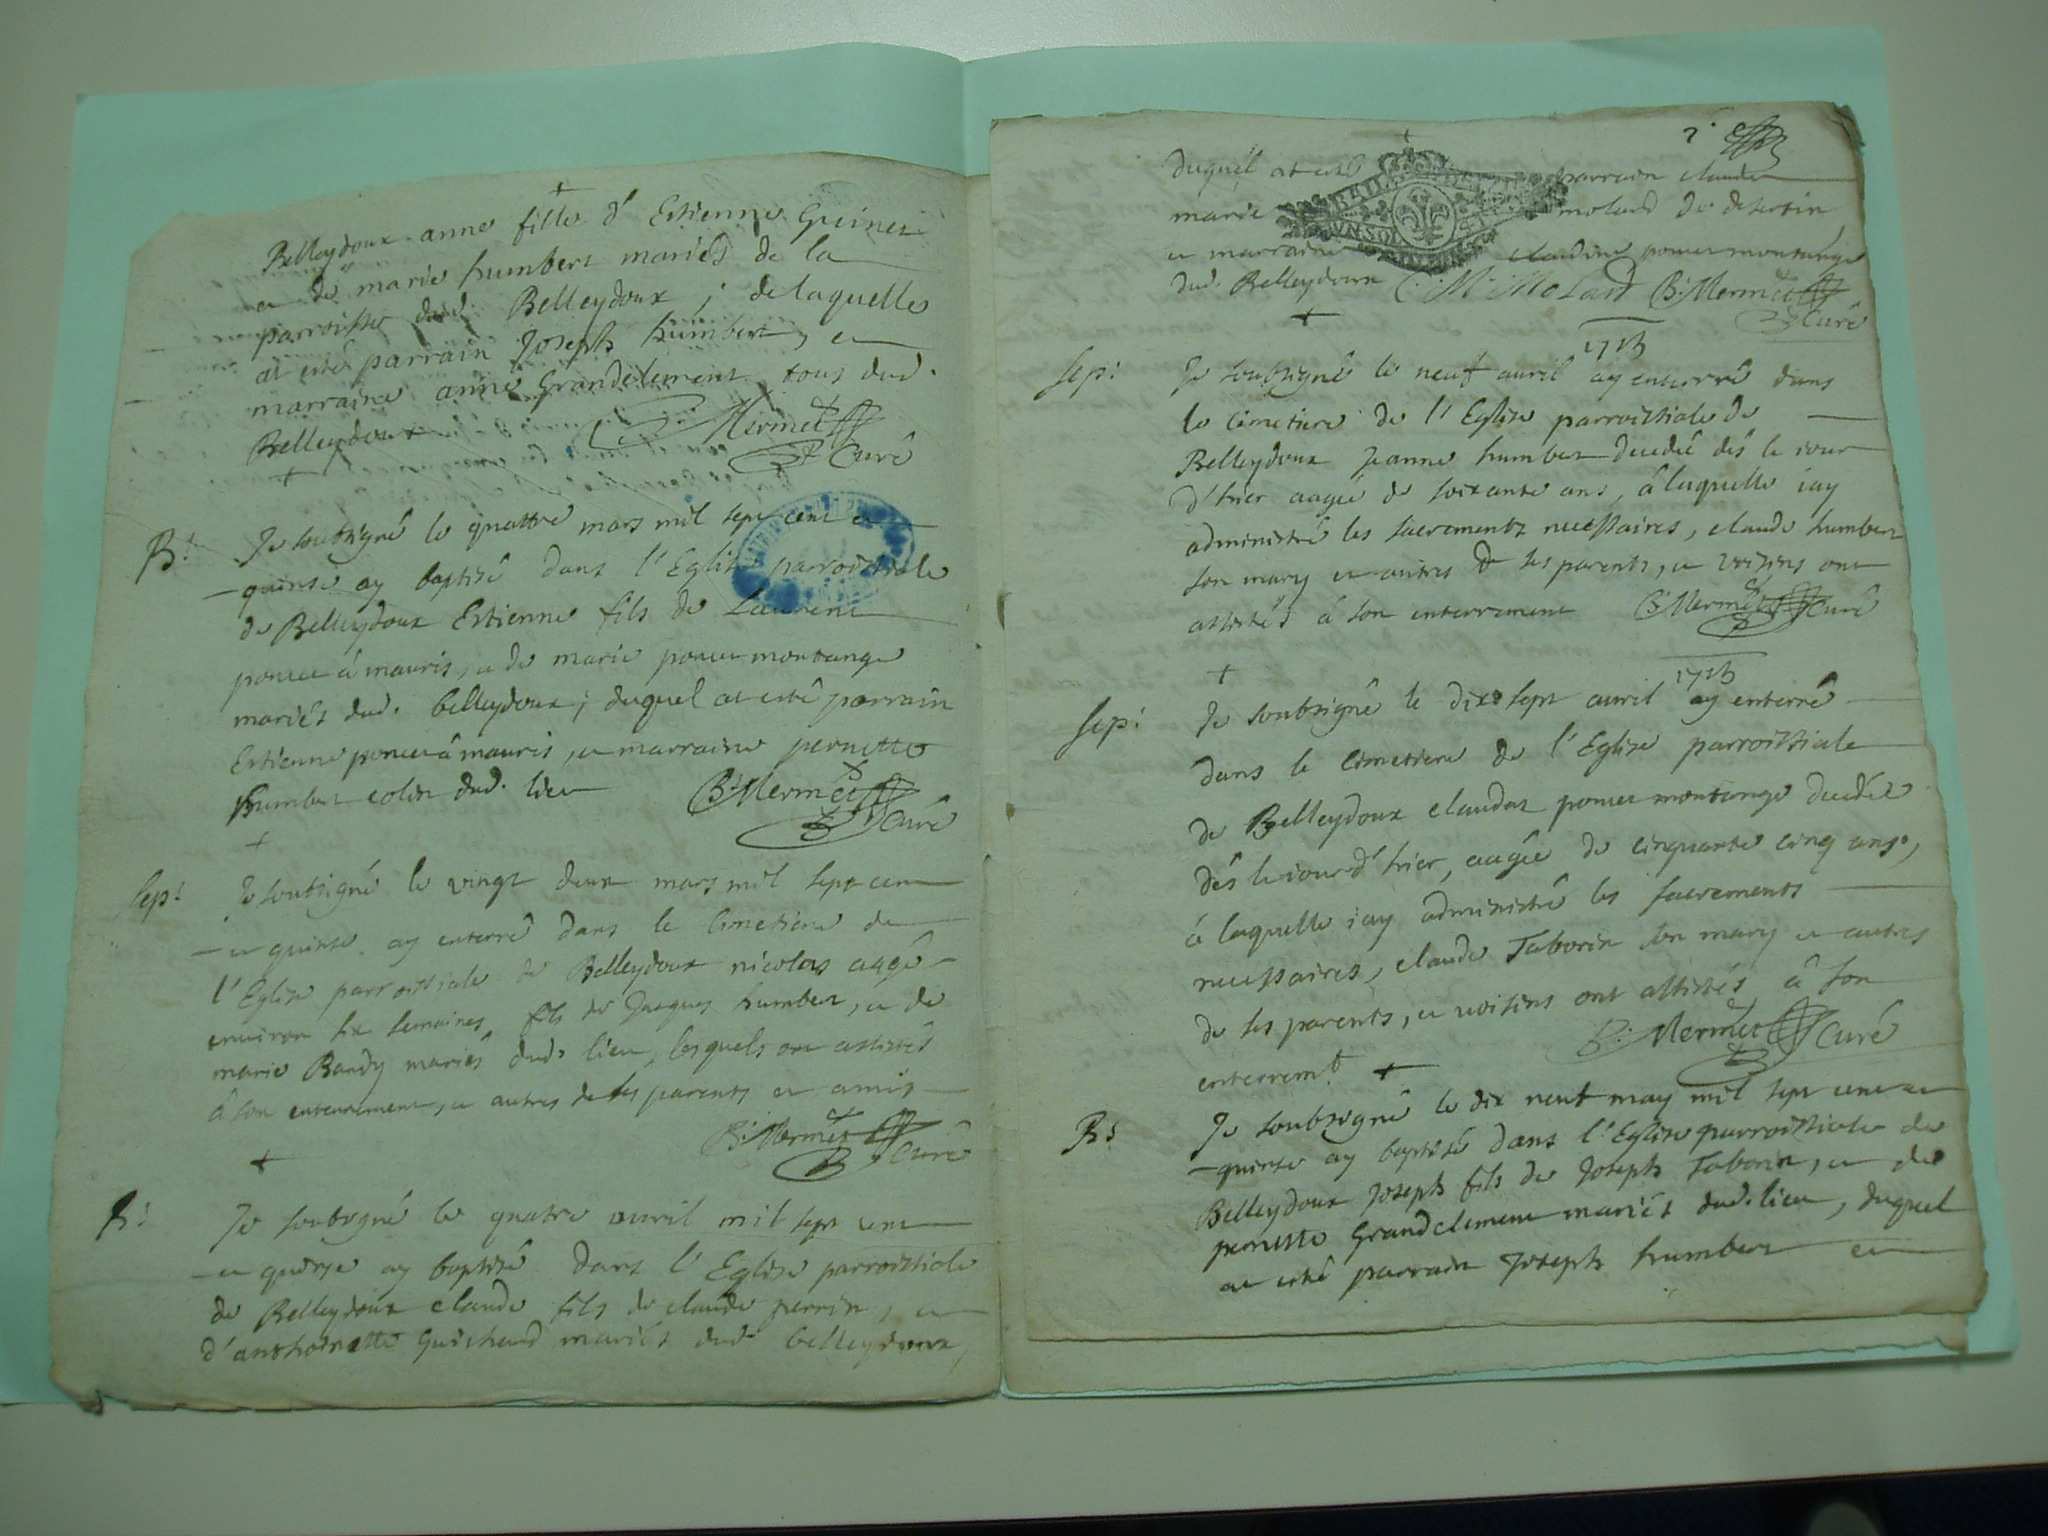 Belleydoux anne fille d'Estienne
et de marie humbert mariés de la
parroisse dud. Belleydoux ; de laquelle
at esté parrain Joseph humbert, et
marraine anne Grandclement tous dud.
Belleydoux Mermet
Curé
B: Je soubsigné le quattre mars mil sept cent et
quinse ay baptisé dans l'Eglise parroissiale
de Belleydoux Estienne fils de Laurent
poncet à mauris, et de marie poncet montange
mariés dud. belleydoux ; duquel at esté parrain
Estienne poncet à mauris, et marraine pernette
humbert colin dud. lieu B. Mermet
Curé
Sep: Je soubsigné le vingt deux mars mil sept cent
et quinse ay enterré dans le Cimetiere de
l'Eglise parroissiale de Belleydoux nicolas aagé
environ six semaines, fils de Jacques humbert, et de
marie Bandy mariés dud. lieu, lesquels ont assistés
à son enterrement, et autres de ses parents et amis
B. Mermet
Curé
B: Je soubsigné le quatre avril mil sept cent
et quinse ay baptisé dans l'Eglise parroissiale
de Belleydoux claude fils de claude perrin, et
d'anthoinette Guichard mariés dud. belleydoux,
duquel at esté parrain claude
marie molard de desertin
et marraine claudine poncet montange
dud. Belleydoux C. M. Molard B. Mermet
Curé
1715
Sep: Je soubsigné le neuf avril ay enterré dans
le Cimetiere de l'Eglise parroissiale de
Belleydoux Jeanne humbert decedée dés le jour
d'hier aagée de soixante ans, à laquelle j'ay
administré les sacrements necessaires, claude humbert
son mary et autres de ses parents, et voisins ont
assistés à son enterrement B. Mermet Curé
1715
Sep: Je soubsigné le dix sept avril ay enterré
dans le Cimetiere de l'Eglise parroissiale
de Belleydoux claudaz poncet montange decedée
dés le jour d'hier, aagée de cinquante cinq ans,
à laquelle j'ay administré les sacrements
necessaires, claude Taborin son mary et autres
de ses parents, et voisins ont assistés à son
enterremt. B. Mermet Curé
B: Je soubsigné le dix neuf may mil sept cent et
quinse ay baptisé dans l'Eglise parroissiale de
Belleydoux Joseph fils de Joseph Taborin, et de
pernette Grandclement mariés dud. lieu, duquel
at esté parrain Joseph humbert et